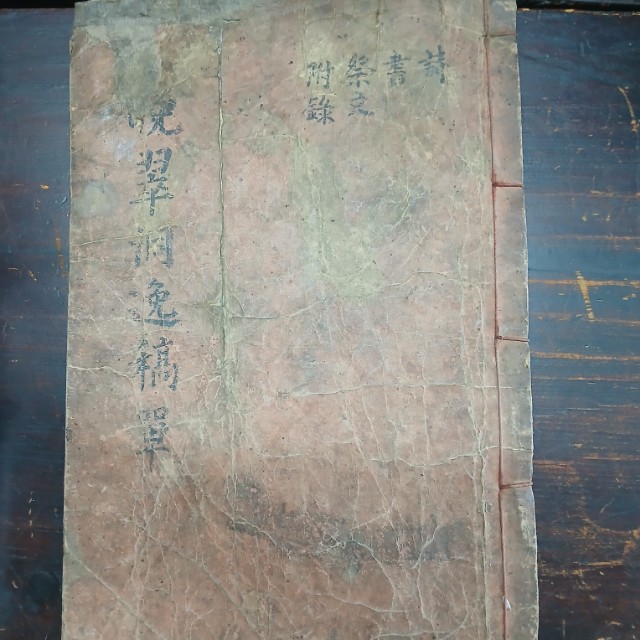 詩
書
祭文
附錄
晩翠洞逸稿單